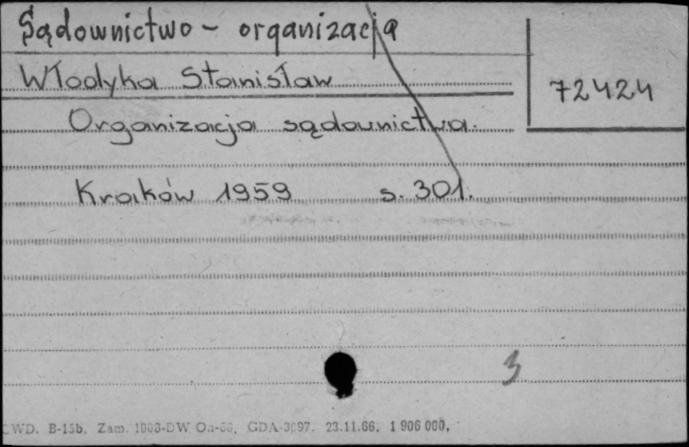 Sądownictwo - organizacja
Włodyka Stanisław
72424
Organizacja sądownictwa.
Kraków 1959 s. 301.
3
WD. B-15b. Zam. GDA 23.11.66. 1 906 000.